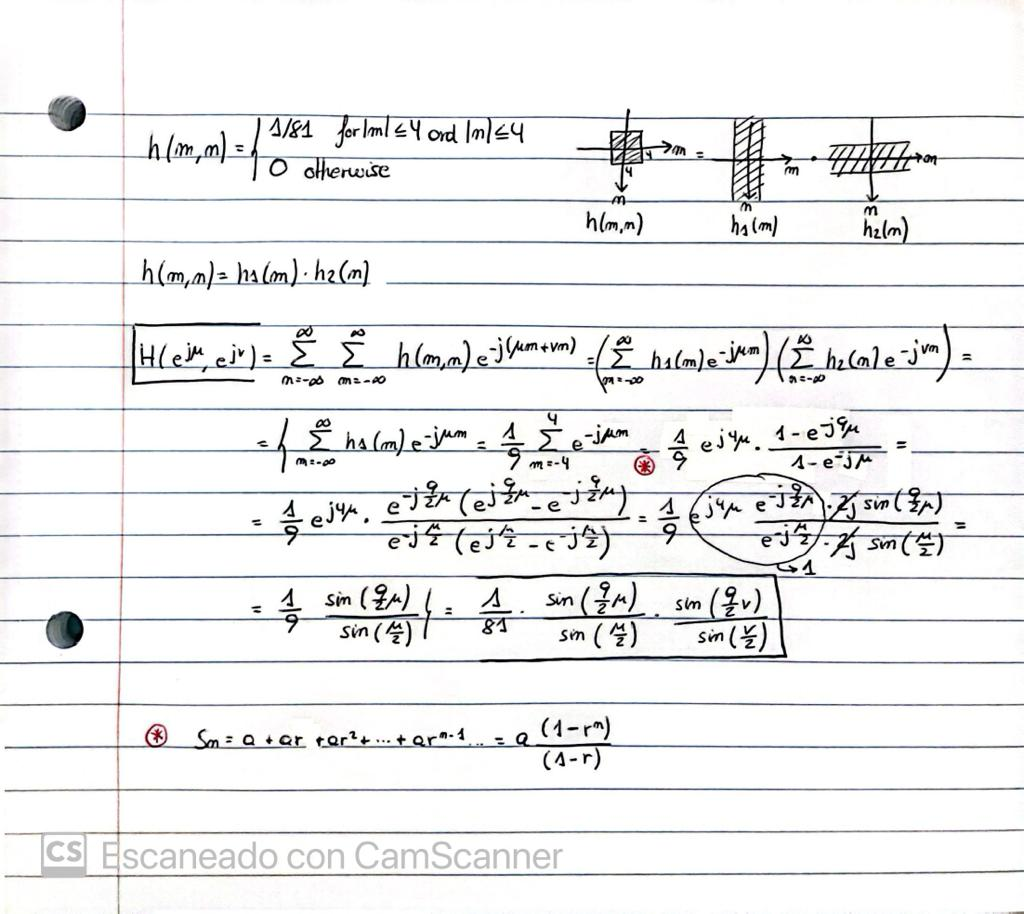 h(m,n) = { 1/81 for |m| ≤ 4 and |n| ≤ 4
0 otherwise
4 m = m · m
4
n n n
h(m,n) h1(m) h2(n)
h(m,n) = h1(m) · h2(n)
H(e^{jμ}, e^{jν}) = Σ_{n=-∞}^{∞} Σ_{m=-∞}^{∞} h(m,n) e^{-j(μm+νn)} = (Σ_{m=-∞}^{∞} h1(m) e^{-jμm}) (Σ_{n=-∞}^{∞} h2(n) e^{-jνn}) =
= { Σ_{m=-∞}^{∞} h1(m) e^{-jμm} = 1/9 Σ_{m=-4}^{4} e^{-jμm} =⊛ 1/9 e^{j4μ} · (1 - e^{-j9μ})/(1 - e^{-jμ}) =
= 1/9 e^{j4μ} · (e^{-j9/2μ} (e^{j9/2μ} - e^{-j9/2μ}))/(e^{-jμ/2} (e^{jμ/2} - e^{-jμ/2})) = 1/9 e^{j4μ} (e^{-j9/2μ} · 2j sin(9/2μ))/(e^{-jμ/2} · 2j sin(μ/2)) =
↳ 1
= 1/9 sin(9/2μ)/sin(μ/2) } = 1/81 · sin(9/2μ)/sin(μ/2) · sin(9/2ν)/sin(ν/2)
⊛ Sn = a + ar + ar² + ... + ar^{n-1} ... = a (1-r^n)/(1-r)
CS Escaneado con CamScanner